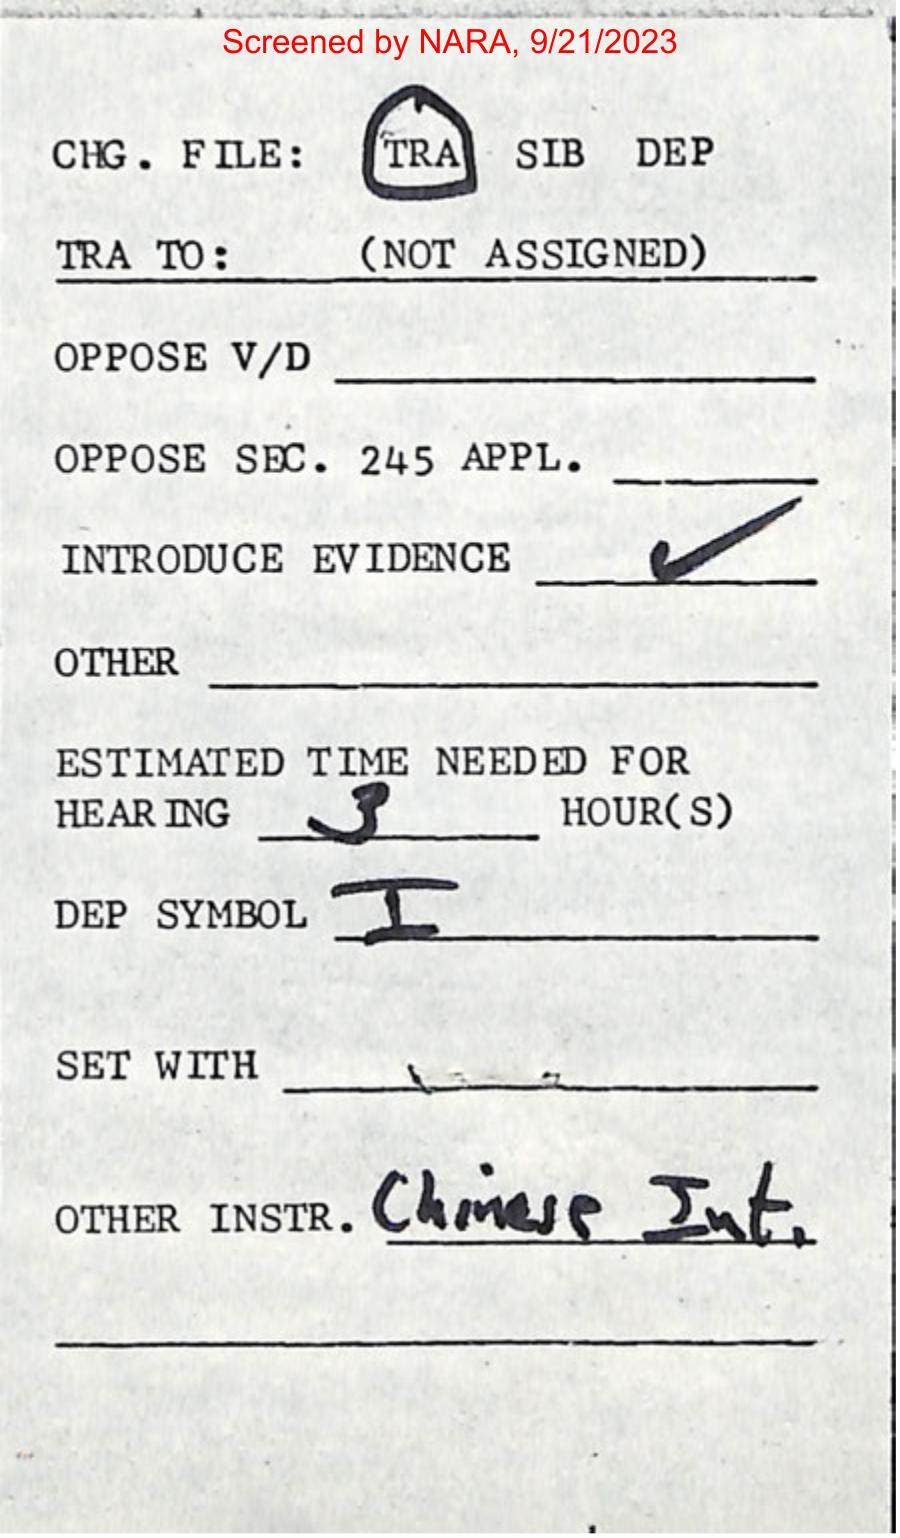 Screened by NARA, 9/21/2023
CHG. FILE: TRA SIB DEP
TRA TO: (NOT ASSIGNED)
OPPOSE V/D
OPPOSE SEC. 245 APPL.
INTRODUCE EVIDENCE ✓
OTHER
ESTIMATED TIME NEEDED FOR
HEARING 3 HOUR(S)
DEP SYMBOL I
SET WITH
OTHER INSTR. Chinese Int.